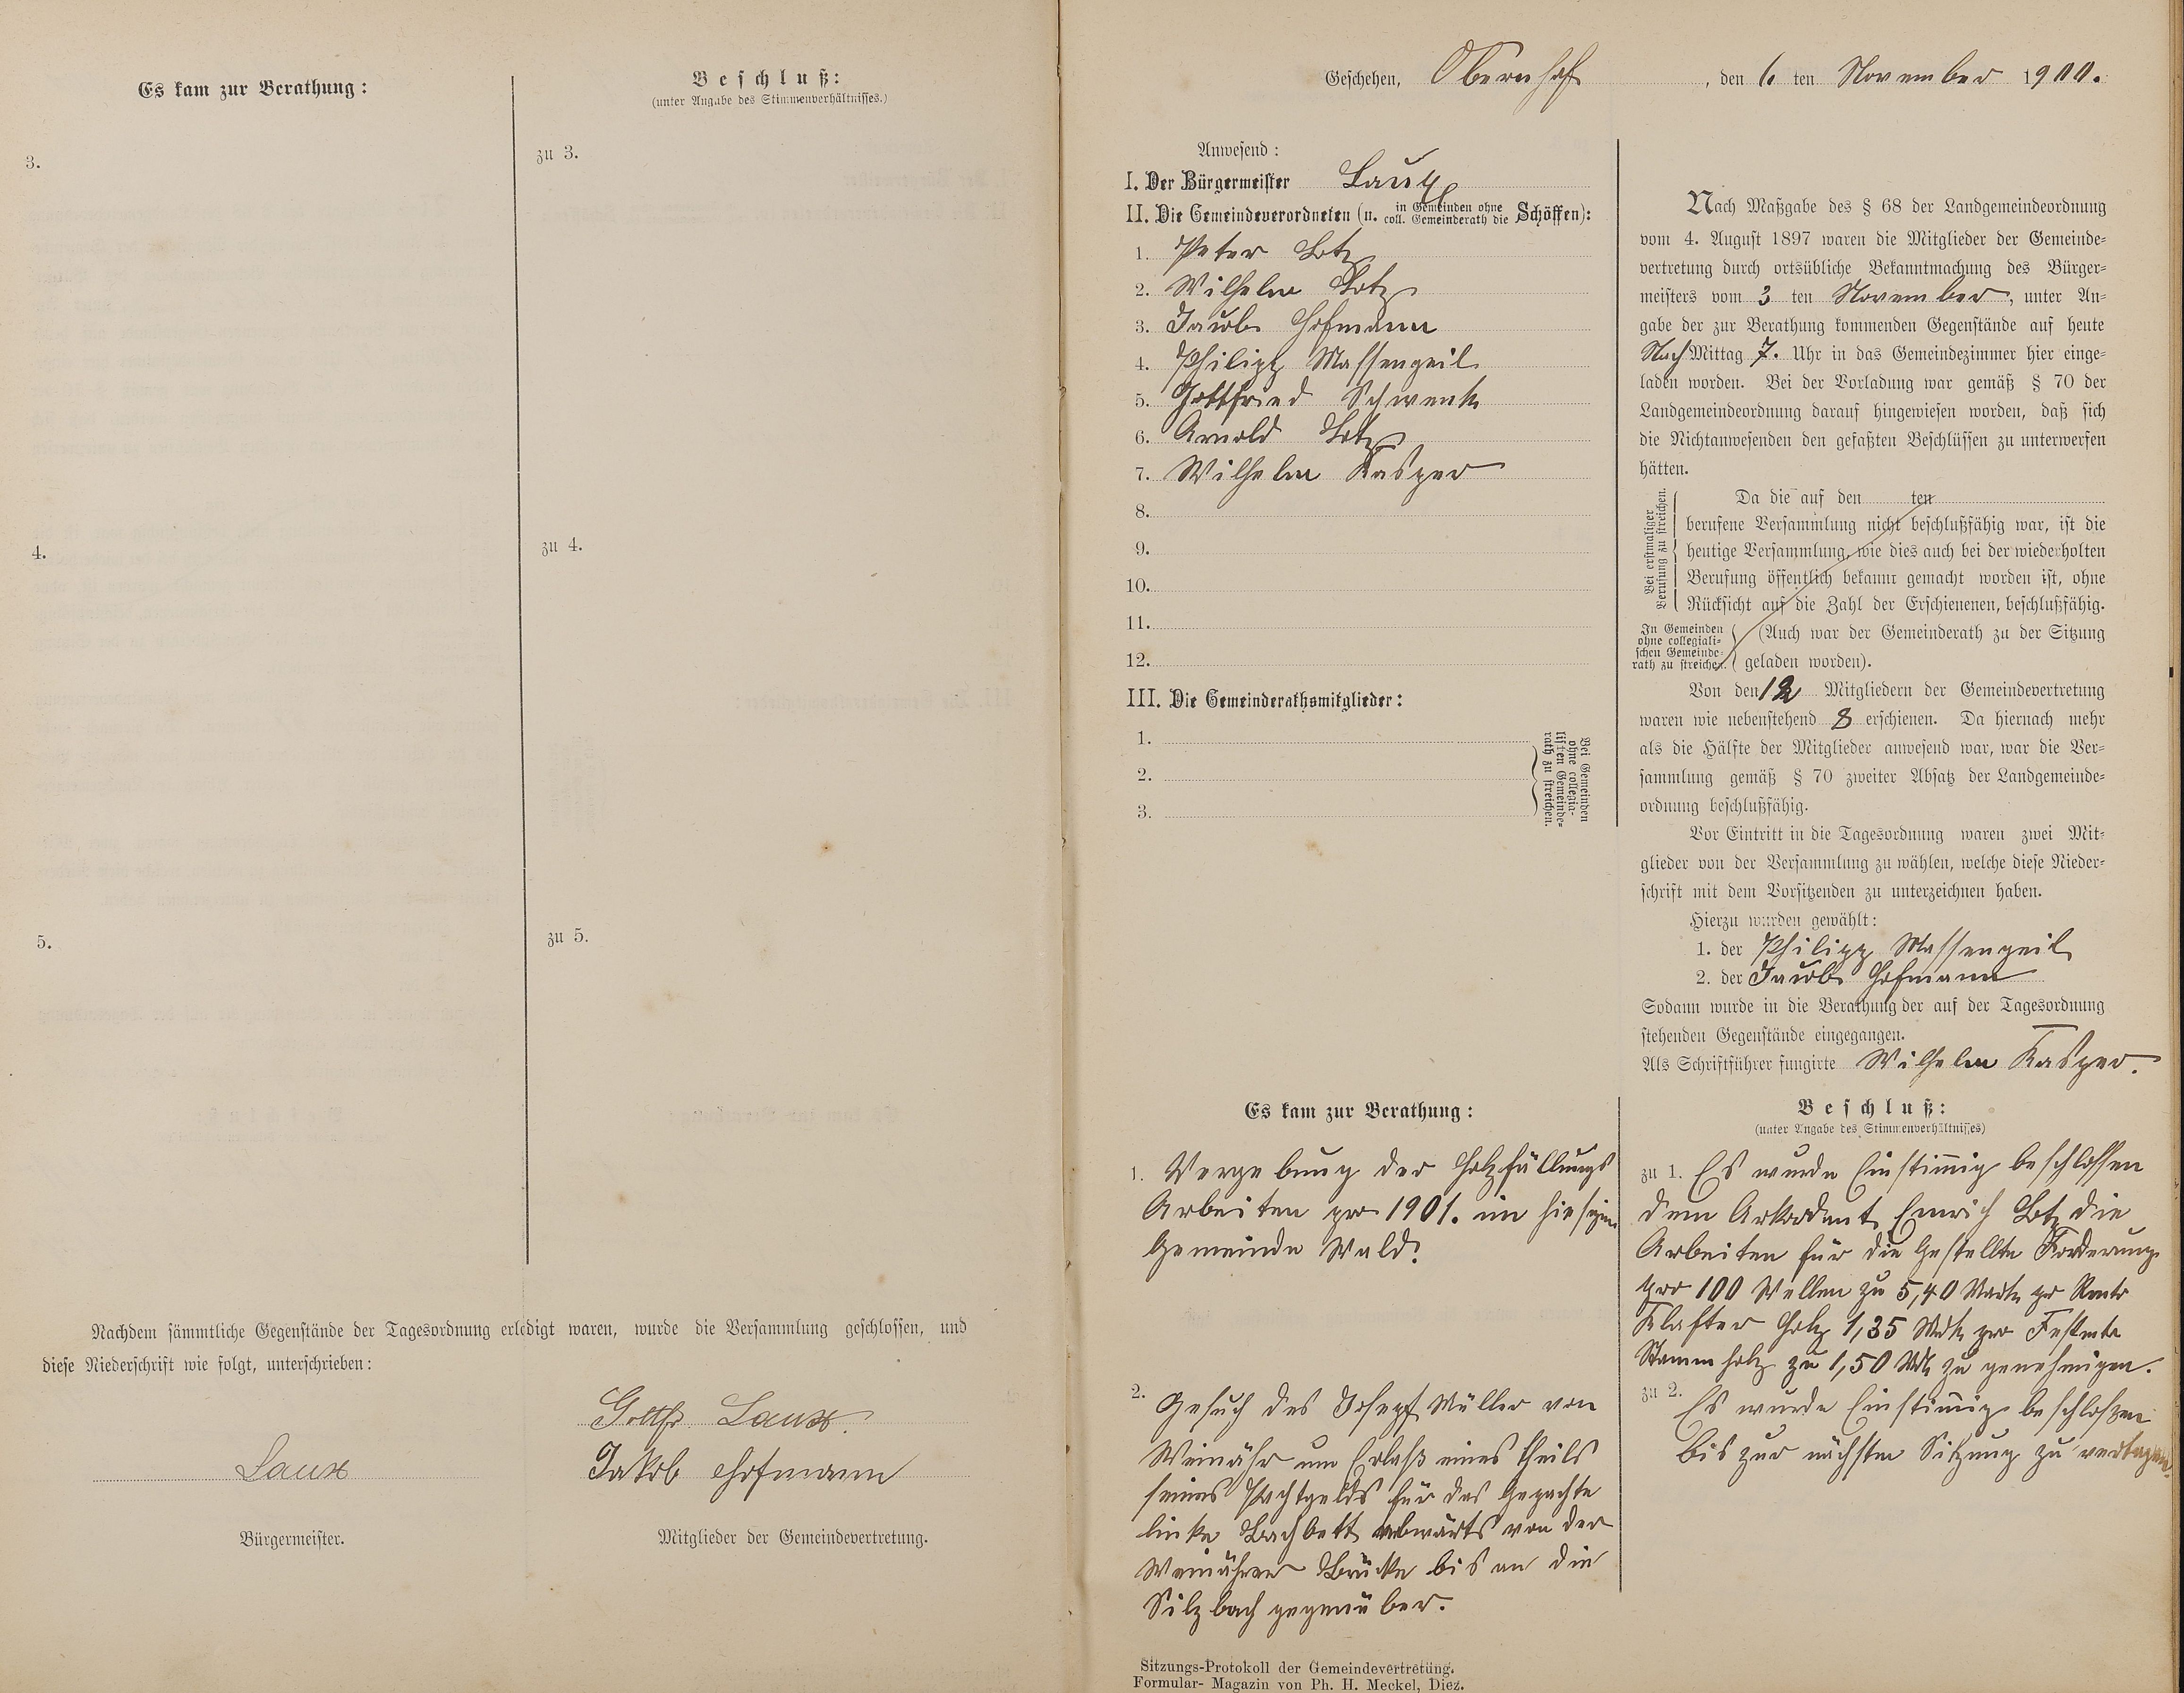 Es kam zur Berathung:
Beschluß:
(unter Angabe des Stimmenverhältnisses.)
3.
zu 3.
4.
zu 4.
5.
zu 5.
Nachdem sämmtliche Gegenstände der Tagesordnung erledigt waren, wurde die Versammlung geschlossen, und
diese Niederschrift wie folgt, unterschrieben:
Laux
Bürgermeister.
Gottfr Laux.
Jakob Hofmann
Mitglieder der Gemeindevertretung.
Geschehen, Obernhof, den 6 ten November 1900.
Anwesend:
I. Der Bürgermeister Laux
II. Die Gemeindeverordneten (u. in Gemeinden ohne coll. Gemeinderath die Schöffen):
1. Peter Lotz
2. Wilhelm Lotz
3. Jacob Hofmann
4. Philipp Massengeil
5. Gottfried Schwenk
6. Arnold Lotz
7. Wilhelm Kasper
8.
9.
10.
11.
12.
III. Die Gemeinderathsmitglieder:
1.
2.
3.
Bei Gemeinden
ohne collegia-
lischen Gemeinde-
rath zu streichen.
Nach Maßgabe des § 68 der Landgemeindeordnung
vom 4. August 1897 waren die Mitglieder der Gemeinde-
vertretung durch ortsübliche Bekanntmachung des Bürger-
meisters vom 3 ten November, unter An-
gabe der zur Berathung kommenden Gegenstände auf heute
Nach Mittag 7. Uhr in das Gemeindezimmer hier einge-
laden worden. Bei der Vorladung war gemäß § 70 der
Landgemeindeordnung darauf hingewiesen worden, daß sich
die Nichtanwesenden den gefaßten Beschlüssen zu unterwerfen
hätten.
Bei erstmaliger
Berufung zu streichen.
Da die auf den ten
berufene Versammlung nicht beschlußfähig war, ist die
heutige Versammlung, wie dies auch bei der wiederholten
Berufung öffentlich bekannt gemacht worden ist, ohne
Rücksicht auf die Zahl der Erschienenen, beschlußfähig.
In Gemeinden
ohne collegiali-
schen Gemeinde-
rath zu streichen.
(Auch war der Gemeinderath zu der Sitzung
geladen worden).
Von den 12 Mitgliedern der Gemeindevertretung
waren wie nebenstehend 8 erschienen. Da hiernach mehr
als die Hälfte der Mitglieder anwesend war, war die Ver-
sammlung gemäß § 70 zweiter Absatz der Landgemeinde-
ordnung beschlußfähig.
Vor Eintritt in die Tagesordnung waren zwei Mit-
glieder von der Versammlung zu wählen, welche diese Nieder-
schrift mit dem Vorsitzenden zu unterzeichnen haben.
Hierzu wurden gewählt:
1. der Philipp Massengeil
2. der Jacob Hofmann
Sodann wurde in die Berathung der auf der Tagesordnung
stehenden Gegenstände eingegangen.
Als Schriftführer fungirte Wilhelm Kasper.
Es kam zur Berathung:
1. Vergebung der Holzfällungs
Arbeiten pro 1901. im hiesigen
Gemeinde Wald.
2. Gesuch des Josepf Müller von
Weinähr um Erlaß eines Theils
seines Pachtgelds für das Gepachte
linke Bachbett abwärts von der
Weinährer Brücke bis an die
Silzbach gegenüber.
Beschluß:
(unter Angabe des Stimmenverhältnisses)
zu 1. Es wurde Einstimig beschlossen
dem Arkordant Emrich Lotz die
Arbeiten für die Gestellte Forderung
pro 100 Wellen zu 5,40 Mark pr
Klafter Holz 1,35 Mk pro Festmtr
Stammholz zu 1,50 Mk zu genehmigen.
zu 2. Es wurde Einstimig beschloßen
bis zur nächsten Sitzung zu vertagen.
Sitzungs-Protokoll der Gemeindevertretung.
Formular-Magazin von Ph. H. Meckel, Diez.